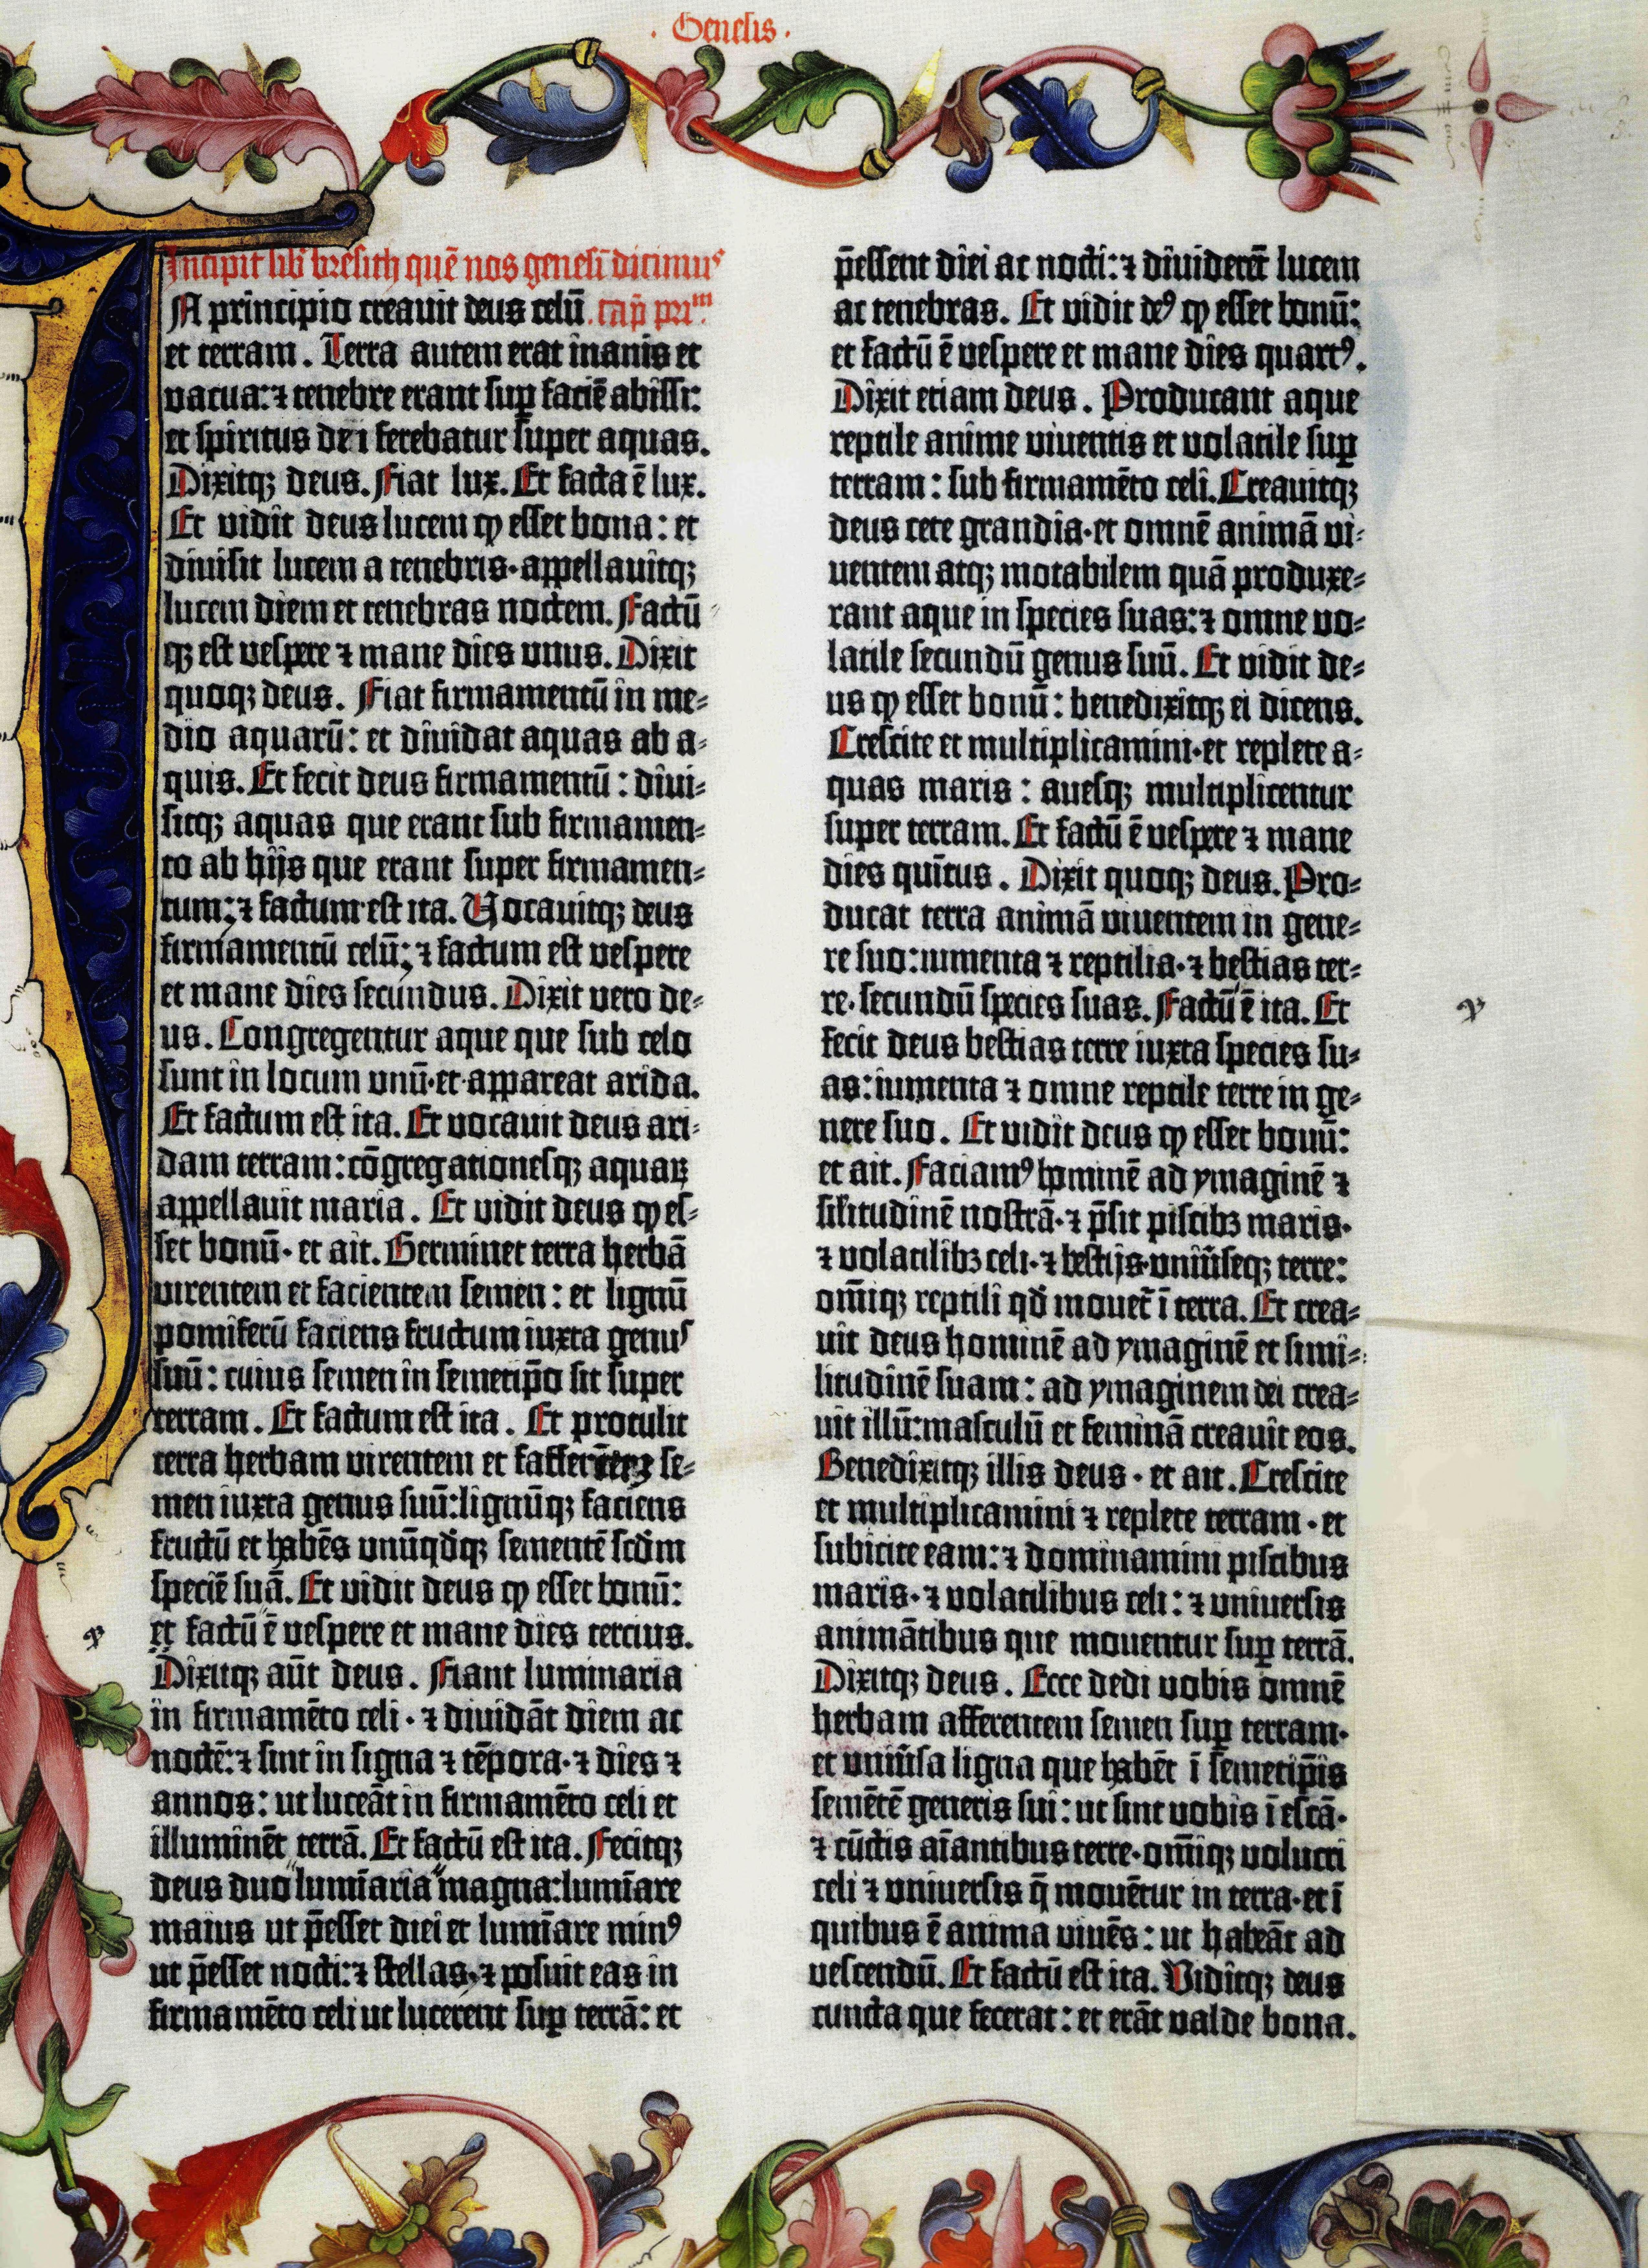 . Genesis .
Incipit lib' bresith quē nos genesī dicimus
In principio creavit deus celū . cap̄ prim̄.
et terram. Terra autem erat inanis et
vacua: ⁊ tenebre erant sup̱ faciē abissi:
et spiritus dei ferebatur super aquas.
Dixitqꝫ deus. Fiat lux. Et facta ē lux.
Et vidit deus lucem ꝙ esset bona: et
divisit lucem a tenebris·appellavitqꝫ
lucem diem et tenebras noctem. Factū
qꝫ est vespere ⁊ mane dies unus. Dixit
quoqꝫ deus. Fiat firmamentū in me-
dio aquarū: et dividat aquas ab a-
quis. Et fecit deus firmamentū: divi-
sitqꝫ aquas que erant sub firmamen-
to ab hijs que erant super firmamen-
tum: ⁊ factum est ita. Vocavitqꝫ deus
firmamentū celū: ⁊ factum est vespere
et mane dies secundus. Dixit vero de-
us. Congregentur aque que sub celo
sunt in locum unū·et appareat arida.
Et factum est ita. Et vocavit deus ari-
dam terram: cōgregationesqꝫ aquaꝝ
appellavit maria. Et vidit deus ꝙ es-
set bonū· et ait. Germinet terra herbā
virentem et facientem semen: et lignū
pomiferū faciens fructum iuxta genus
suū: cuius semen in semetip̄o sit super
terram. Et factum est ita. Et protulit
terra herbam virentem et se-
men iuxta genus suū: lignūqꝫ faciens
fructū et habēs unūqd̄qꝫ sementē scd̄m
speciē suā. Et vidit deus ꝙ esset bonū:
et factū ē vespere et mane dies tercius.
Dixitqꝫ aūt deus. Fiant luminaria
in firmamēto celi· ⁊ dividāt diem ac
noctē: ⁊ sint in signa ⁊ tēpora· ⁊ dies ⁊
annos: ut luceāt in firmamēto celi et
illuminēt terrā. Et factū est ita. Fecitqꝫ
deus duo lumīaria magna: lumīare
maius ut p̄esset diei et lumīare minꝰ
ut p̄esset nocti: ⁊ stellas· ⁊ posuit eas in
firmamēto celi ut lucerent sup̱ terrā: et
p̄essent diei ac nocti: ⁊ dividerēt lucem
ac tenebras. Et vidit deꝰ ꝙ esset bonū:
et factū ē vespere et mane dies quartꝰ.
Dixit etiam deus. Producant aque
reptile anime viventis et volatile sup̱
terram: sub firmamēto celi. Creavitqꝫ
deus cete grandia·et omnē animā vi-
ventem atqꝫ motabilem quā produxe-
rant aque in species suas: ⁊ omne vo-
latile secundū genus suū. Et vidit de-
us ꝙ esset bonū: benedixitqꝫ ei dicens.
Crescite et multiplicamini·et replete a-
quas maris: avesqꝫ multiplicentur
super terram. Et factū ē vespere ⁊ mane
dies quītus. Dixit quoqꝫ deus. Pro-
ducat terra animā viventem in gene-
re suo: iumenta ⁊ reptilia· ⁊ bestias ter-
re·secundū species suas. Factū ē ita. Et
fecit deus bestias terre iuxta species su-
as: iumenta ⁊ omne reptile terre in ge-
nere suo. Et vidit deus ꝙ esset bonū:
et ait. Faciamꝰ hominē ad ymaginē ⁊
sil'itudinē nostrā· ⁊ p̄sit piscibꝫ maris·
⁊ volatilibꝫ celi· ⁊ bestijs·univ̄seqꝫ terre:
om̄iqꝫ reptili qd̄ movet̄ ī terra. Et crea-
vit deus hominē ad ymaginē et simi-
litudinē suam: ad ymaginem dei crea-
vit illū: masculū et feminā creavit eos.
Benedixitqꝫ illis deus· et ait. Crescite
et multiplicamini ⁊ replete terram· et
subicite eam: ⁊ dominamini piscibus
maris· ⁊ volatilibus celi: ⁊ universis
animātibus que moventur sup̱ terrā.
Dixitqꝫ deus. Ecce dedi vobis omnē
herbam afferentem semen sup̱ terram·
et univ̄sa ligna que habēt ī semetip̄is
semētē generis sui: ut sint vobis ī escā·
⁊ cūctis aīantibus terre·om̄iqꝫ volucri
celi ⁊ universis q̄ movētur in terra·et ī
quibus ē anima vivēs: ut habeāt ad
vescendū. Et factū est ita. Viditqꝫ deus
cuncta que fecerat: et erāt valde bona.